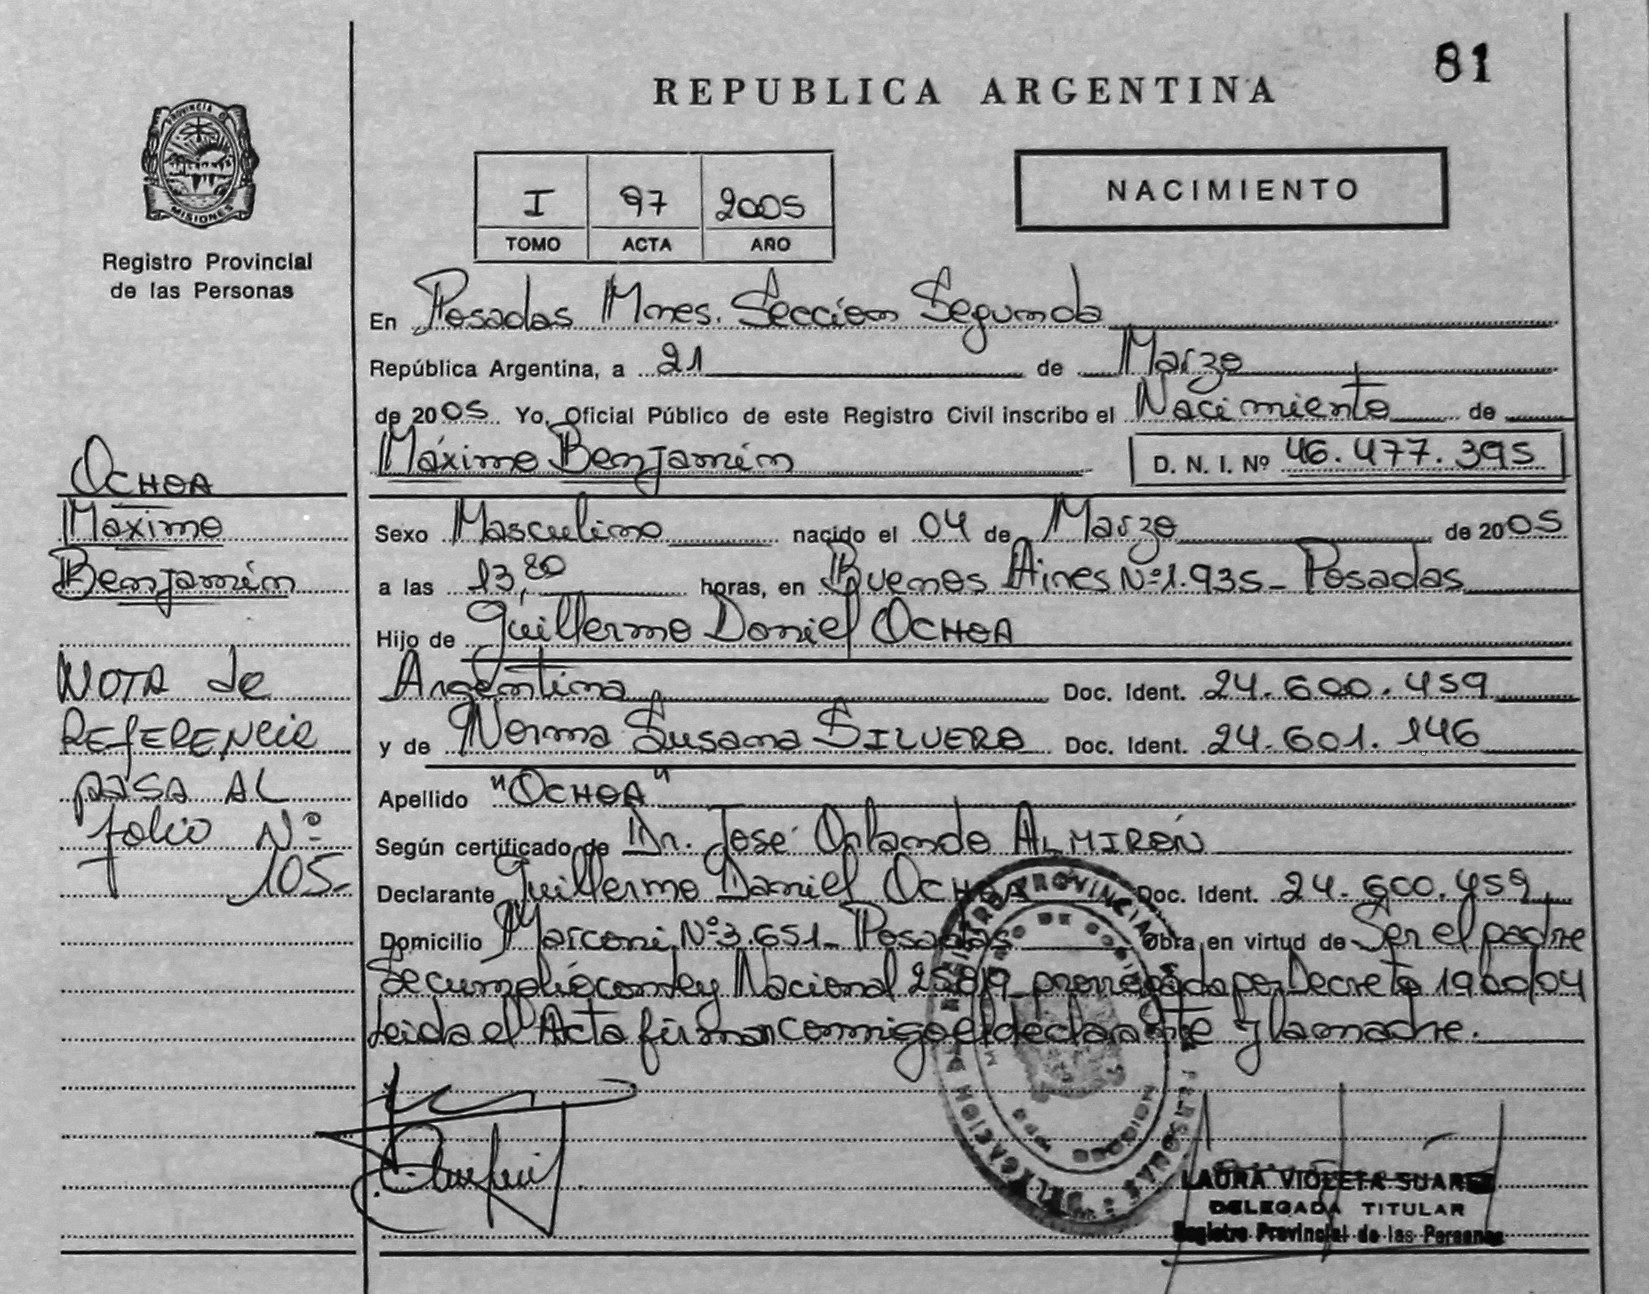 81
REPUBLICA ARGENTINA
PROVINCIA D
MISIONES
Registro Provincial
de las Personas
I 97 2005
TOMO ACTA AÑO
NACIMIENTO
En Posadas Mnes. Sección Segunda
República Argentina, a 21 de Marzo
de 2005 Yo, Oficial Público de este Registro Civil inscribo el Nacimiento de
Máximo Benjamín D. N. I. Nº 46.477.395
OCHOA
Máximo
Benjamín
NOTA de
REFERENCIA
PASA AL
folio Nº
105-
Sexo Masculino nacido el 04 de Marzo de 2005
a las 13,20 horas, en Buenos Aires Nº 1.935- Posadas
Hijo de Guillermo Daniel OCHOA
Argentina Doc. Ident. 24.600.459
y de Norma Susana SILVERO Doc. Ident. 24.601.146
Apellido "OCHOA"
Según certificado de Dr. José Orlando ALMIRÓN
Declarante Guillermo Daniel OCHOA Doc. Ident. 24.600.459
Domicilio Marconi Nº 3.651- Posadas Obra en virtud de Ser el padre
Se cumplió con Ley Nacional 25819 prorrogada por Decreto 1900/04
Leida el Acta firman conmigo el declarante y la madre.
LAURA VIOLETA SUAREZ
DELEGADA TITULAR
Registro Provincial de las Personas